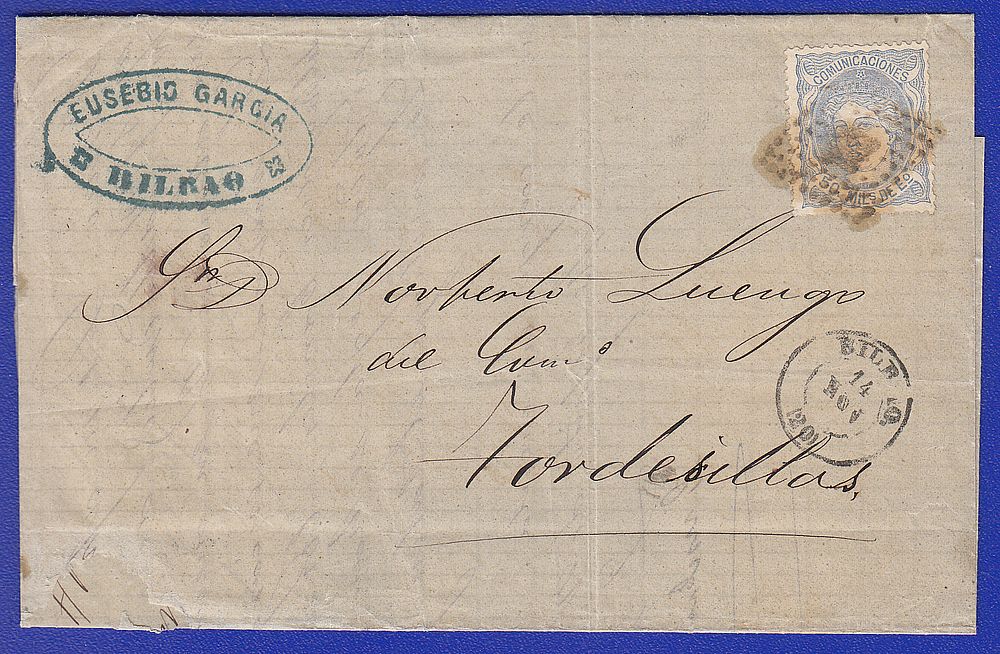 EUSEBIO GARCIA
BILBAO
COMUNICACIONES
50 MILS DE Eo
Sr D Norberto Luengo
del Como
Tordesillas.
BILBAO
14
NOV